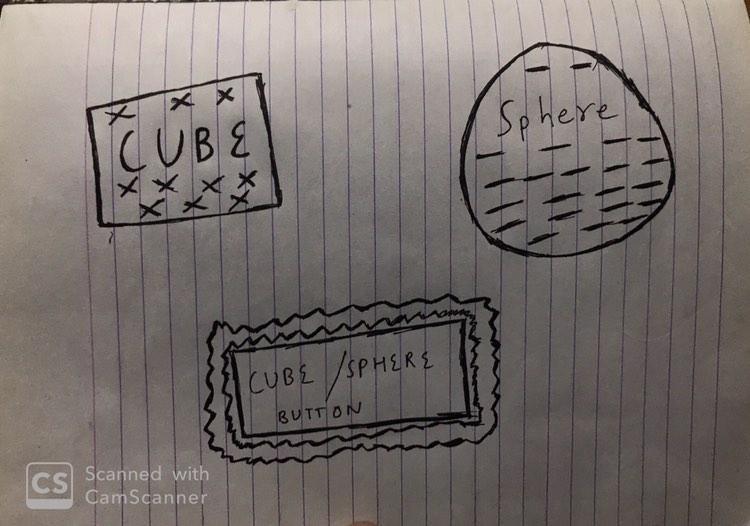 CUBE
Sphere
CUBE / SPHERE
BUTTON
CS Scanned with
CamScanner